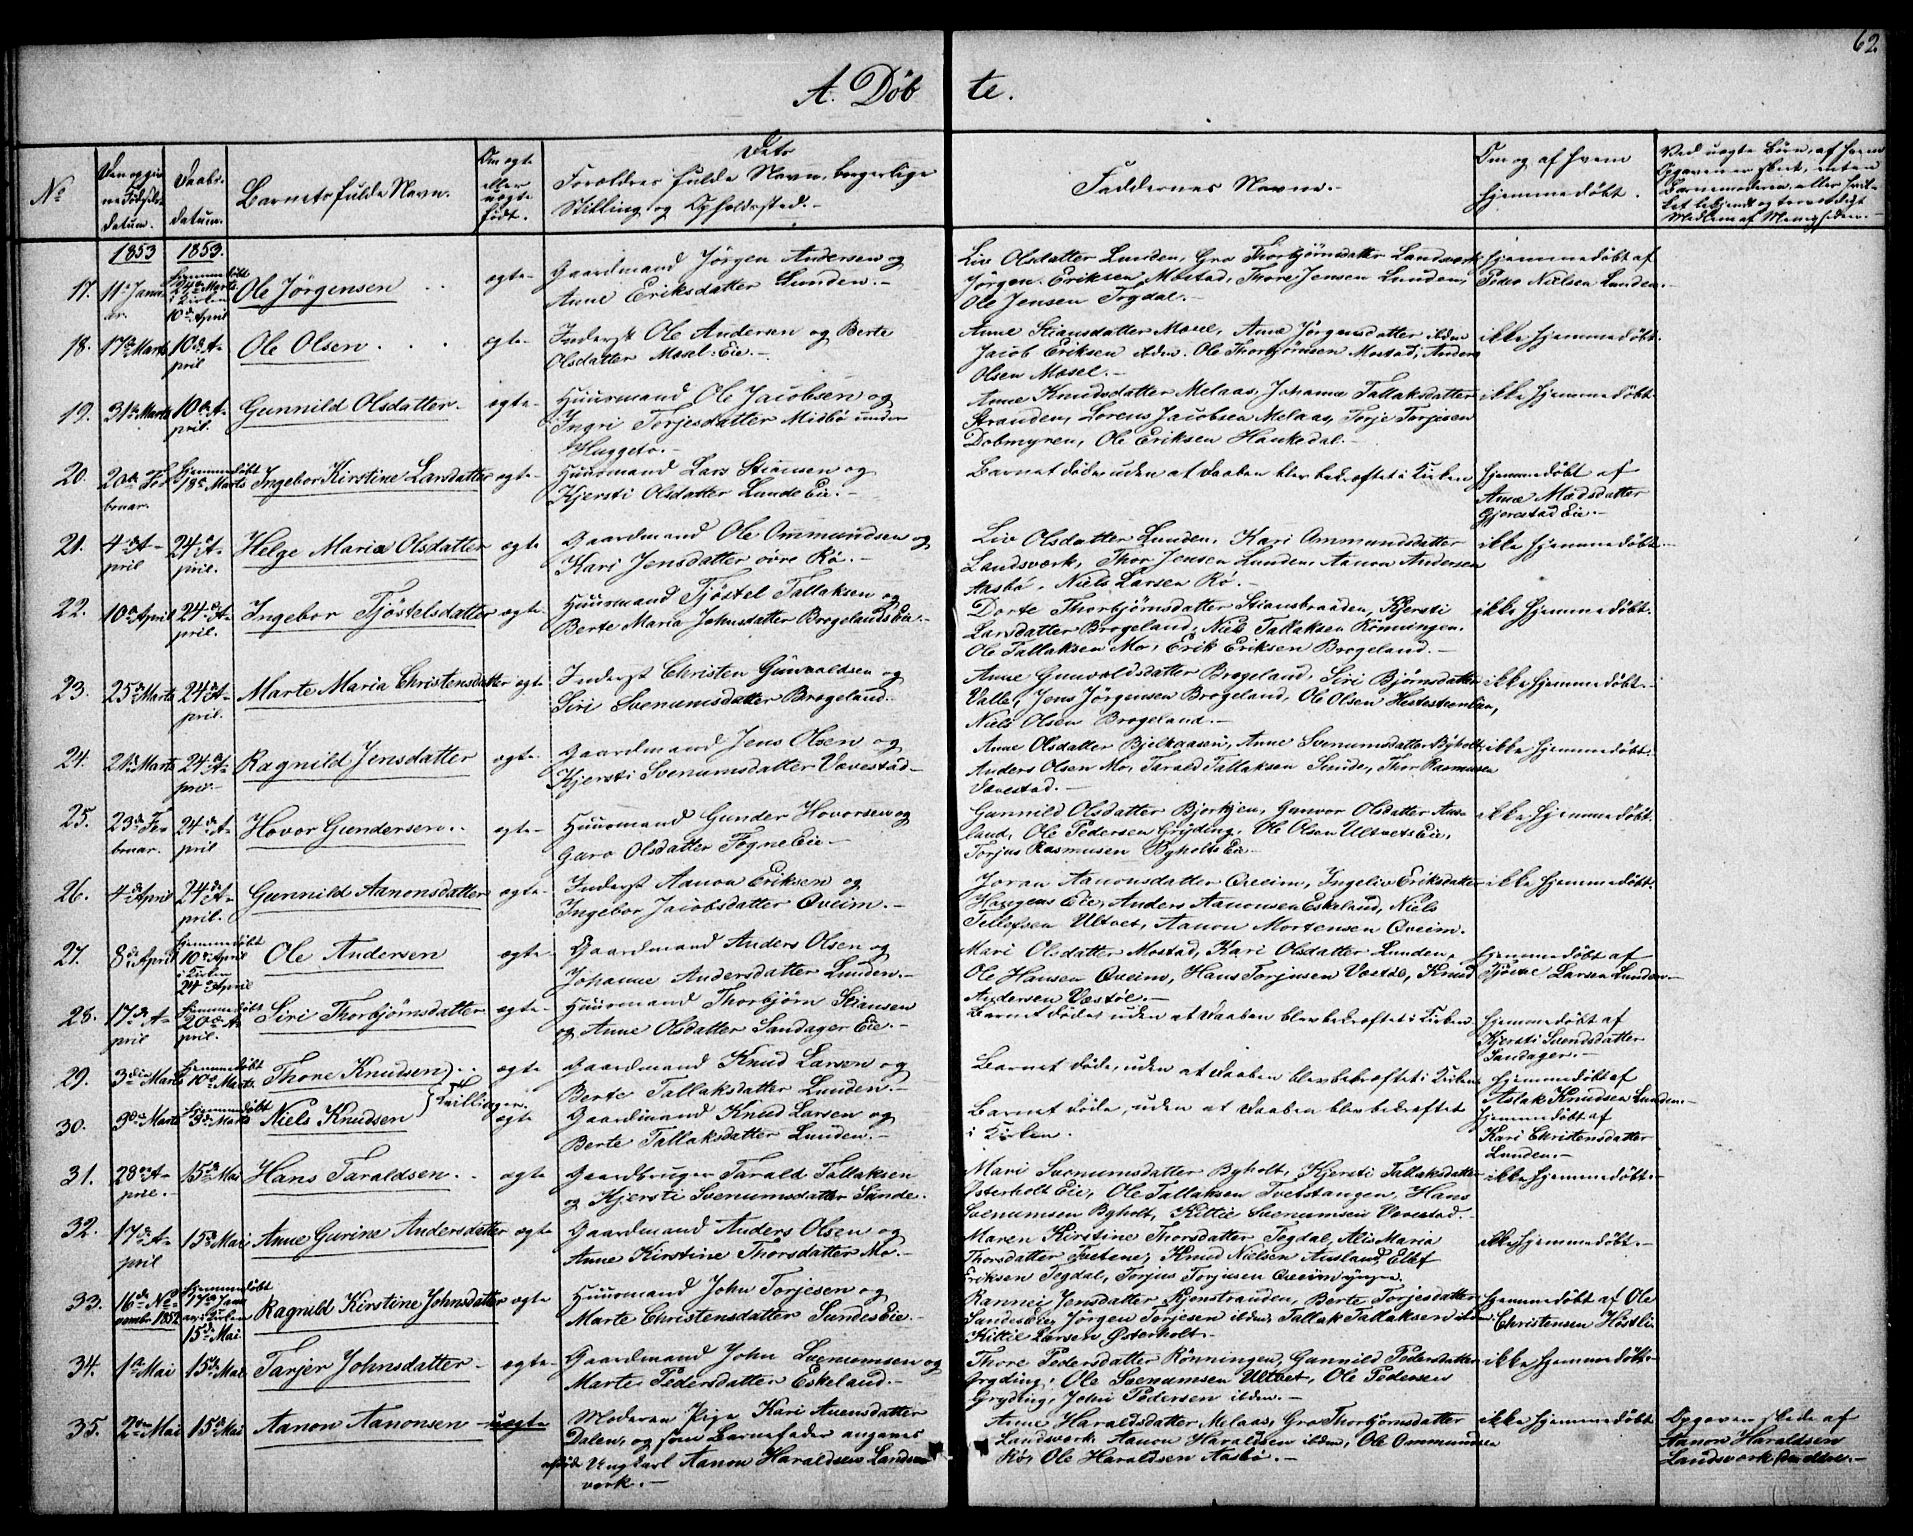 62.
A. Døb te.
No
Den opgivne Fødselsdatum.
Daabsdatum.
Barnets fulde Navn.
Om ægte eller uægte født.
Dets Forældres fulde Navn, borgerlige Stilling og Opholdssted.
Faddernes Navne.
Om og af hvem hjemmedøbt.
1853 1853.
17. Ole Jørgensen ægte Gaardmand Jørgen Andersen og
Anne Eriksdatter Lunden.
Liv Olsdatter Lunden, Gro Thorbjørnsdatter Landsverk
Jørgen Eriksen Mostad, Thore Jensen Lunden,
Ole Jensen Togdal.
hjemmedøbt af
Peder Nielsen Lunden.
18. 17de Marts 10de April Ole Olsen ægte Inderst Ole Andersen og Berte
Olsdatter Mosal. Eie.
Anne Stiansdatter Mosel, Anne Jørgensdatter ibdm
Jacob Eriksen ibdm. Ole Thorbjørnsen Mostad, Anders
Olsen Mosel.
ikke hjemmedøbt.
19. 31te Marts 10de April. Gunnild Olsdatter ægte Huusmand Ole Jacobsen og
Ingri Torjesdatter Midbø under
Haggeto.
Anne Knudsdatter Melaas, Johanne Tallaksdatter
Stranden, Lorens Jacobsen Melaas, Torje Torjesen
Dobmyren, Ole Eriksen Haukedal.
ikke hjemmedøbt.
20. 20de Februar. hjemmedøbt 18de Marts Ingebor Kirstine Larsdatter ægte Huusmand Lars Stiansen og
Kjersti Olsdatter Lunde Eie.
Barnet døde uden at Daaben blev bekræftet i Kirken
hjemmedøbt af
Anne Madsdatter
Gjerestad Eie.
21. 4de April 24de April. Helge Maria Olsdatter ægte Gaardmand Ole Ommundsen og
Kari Jensdatter øvre Rø.
Liv Olsdatter Lunden, Kari Ommundsdatter
Landsverk, Thor Jensen Lunden, Aanon Andersen
Aasbø. Niels Larsen Rø.
ikke hjemmedøbt.
22. 10de April 24de April. Ingebor Tjøstelsdatter ægte Huusmand Tjøstel Tallaksen og
Berte Maria Johnsdatter Brogelands Eie.
Dorte Thorbjørnsdatter Stiansbraaden, Kjersti
Larsdatter Brogeland, Niels Tallaksen Rønningen.
Ole Tallaksen Mo, Erik Eriksen Brogeland.
ikke hjemmedøbt.
23. 25de Marts 24de April. Marte Maria Christensdatter ægte Inderst Christen Gunvaldsen og
Siri Svenumsdatter Brogeland.
Anne Gunvoldsdatter Brogeland, Siri Bjørnsdatter
Valle, Jens Jørgensen Brogeland, Ole Olsen
Niels Olsen Brogeland.
ikke hjemmedøbt.
24. 21de Marts 24de April. Ragnild Jensdatter ægte Gaardmand Jens Olsen og
Kjersti Svenumsdatter Vavestad.
Anne Olsdatter Bjelkaasen, Anne Svenumsdatter Byholt
Anders Olsen Mo, Tarald Tallaksen Sunde, Thor Rasmusen
Vavestad.
ikke hjemmedøbt.
25. 23de Februar. 24de April Hovor Gundersen ægte Huusmand Gunder Hovorsen og
Guro Olsdatter Togne Eie.
Gunnild Olsdatter Bjorkjen, Gunvor Olsdatter Ausland,
Ole Pedersen Gryding, Ole Olsen Ultvets Eie,
Torjus Rasmusen Byholts Eie.
ikke hjemmedøbt.
26. 4de April 24de April. Gunnild Aanonsdatter ægte Inderst Aanon Eriksen og
Ingebor Jacobsdatter Qveim.
Joran Aanonsdatter Qveim, Ingeliv Eriksdatter
Haugens Eie, Anders Aanonsen Eskeland, Niels
Tellefsen Ultvet, Aanon Mortensen Qveim.
ikke hjemmedøbt.
27. 8de April hjemmedøbt 10de April i Kirken 24de April Ole Andersen ægte Gaardmand Anders Olsen og
Johanne Andersdatter Lunden.
Mari Olsdatter Mostad, Kari Olsdatter Lunden,
Ole Hansen Qveim, Hans Torjusen Vestøl, Knud
Andersen Vestøl.
hjemmedøbt af
Larsen Lunden
28. 17de April hjemmedøbt 20de April. Siri Thorbjørnsdatter ægte Huusmand Thorbjørn Stiansen
og Anne Olsdatter Sandager Eie.
Barnet døde uden at Daaben blev bekræftet i Kirken
hjemmedøbt af
Kjersti Svendsdatter
Sandager.
29. 3die Marts hjemmedøbt 10de Marts Thore Knudsen ægte Gaardmand Knud Larsen og
Berte Tallaksdatter Lunden.
Barnet døde, uden at Daaben blev bekræftet i Kirken
hjemmedøbt af
Aslak Knudsen Lunden.
Tvillinger.
30. 3die Marts hjemmedøbt Marts Niels Knudsen ægte Gaardmand Knud Larsen og
Berte Tallaksdatter Lunden.
Barnet døde, uden at Daaben blev bekræftet
i Kirken.
hjemmedøbt af
Kari Christensdatter
Lunden.
31. 28de April. 15de Mai Hans Taraldsen ægte Gaardbruger Tarald Tallaksen
og Kjersti Svenumsdatter Sunde.
Mari Svenumsdatter Byholt, Kjersti Tallaksdatter
Østerholt Eie, Ole Tallaksen Tvetstangen, Hans
Svenumsen Byholt, Kittil Svenumsen Vavestad.
ikke hjemmedøbt.
32. 17de April 15de Mai Anne Gurine Andersdatter ægte Gaardmand Anders Olsen og
Anne Kirstine Thorsdatter Mo.
Maren Kirstine Thorsdatter Togdal, Alis Maria
Thorsdatter Tvetene, Knud Nielsen Ausland, Ellef
Eriksen Togdal, Torjus Torjusen Qveim yngre.
ikke hjemmedøbt.
33. 16de November 1852. 15de Mai Ragnild Kirstine Johnsdatter ægte Huusmand John Torjesen og
Marte Christensdatter Sundes Eie.
Rannei Jensdatter Stranden, Berte Torjesdatter
Sandes Eie, Jørgen Torjesen ibdm, Tallak Tallaksen ibdm
Kittil Larsen Østerholt.
hjemmedøbt af Ole
Christensen Høstli
34. 1ste Mai 15de Mai Tarjer Johnsdatter ægte Gaardmand John Svenumsen og
Marte Pedersdatter Eskeland.
Thore Pedersdatter Rønningen, Gunnild Pedersdatter
Gryding, Ole Svenumsen Ultvet, Ole Pedersen
Gryding, John Pedersen ibdm.
ikke hjemmedøbt.
35. 2den Mai 15de Mai Aanon Aanonsen uægte Moderen Pige Kari Avensdatter
Dalen, og som Barnefader angives
Ungkarl Aanon Haraldsen Landsverk.
Anne Haraldsdatter Melaas, Gro Thorbjørnsdatter
Landsverk, Aanon Haraldsen ibdm, Ole Ommundsen
Rø, Ole Haraldsen Aasbø.
ikke hjemmedøbt
Opgaven skede af
Aanon Haraldsen
Landsverk den ældre.